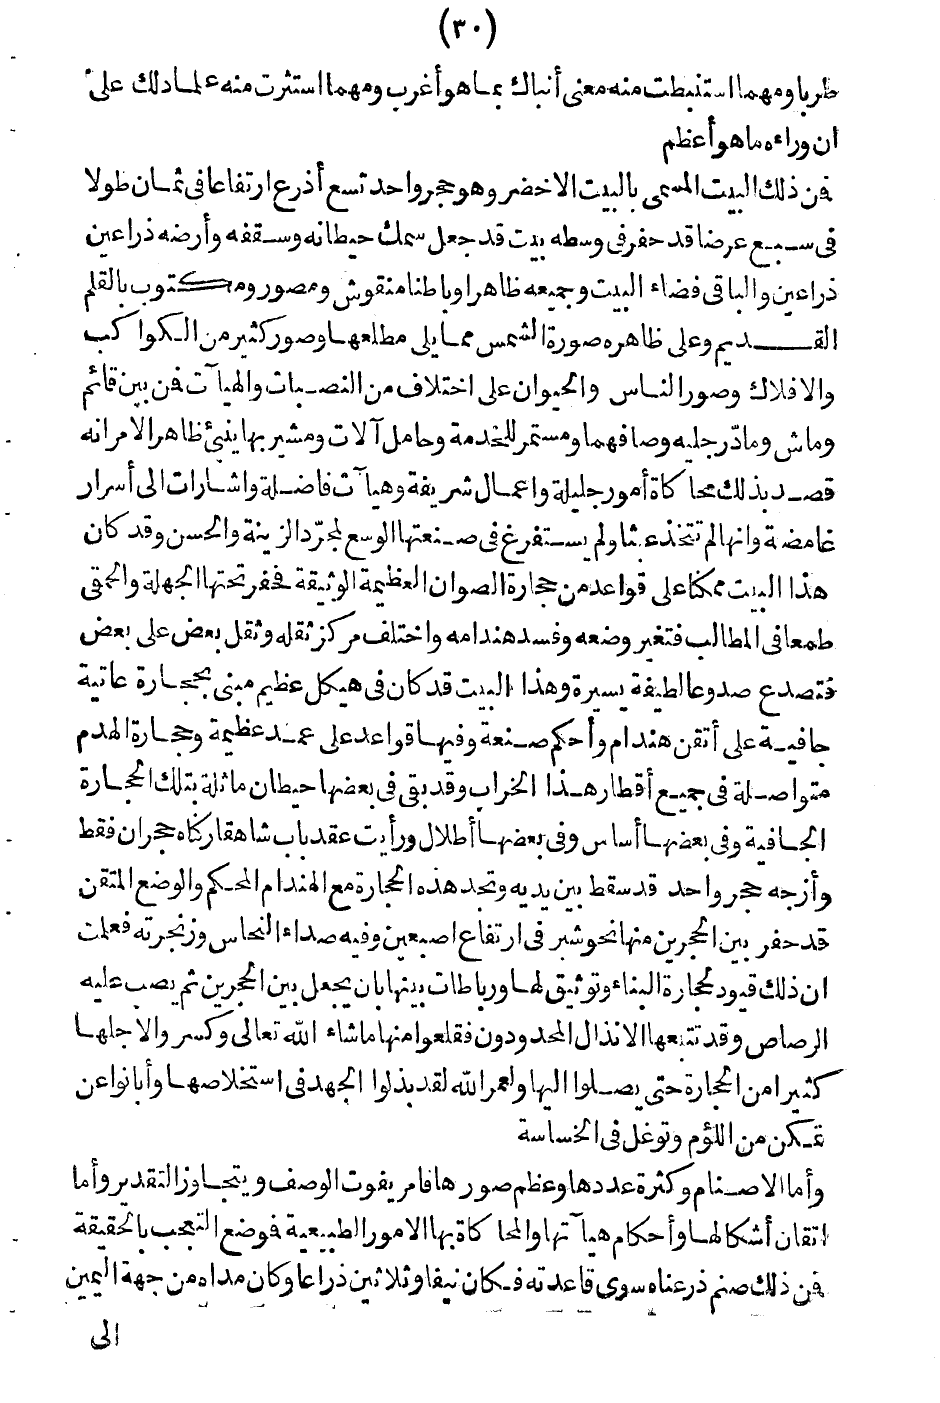 (٣٠)
طربا ومهما استنبطت منه معنى أنباك بما هو أغرب ومهما استثرت منه علما دلك على
ان وراءه ما هو أعظم
فن ذلك البيت المسمى بالبيت الاخضر وهو حجر واحد تسع أذرع ارتفاعا فى ثمان طولا
فى سبع عرضا قد حفر فى وسطه بيت قد جعل سمك حيطانه وسقفه وأرضه ذراعين
ذراعين والباقى فضاء البيت وجميعه ظاهرا وباطنا منقوش ومصور ومكتوب بالقلم
القديم وعلى ظاهره صورة الشمس مما يلى مطلعها وصور كثير من الكواكب
والافلاك وصور الناس والحيوان على اختلاف من النصبات والهيآت فن بين قائم
وماش وماد رجليه وصافهما ومستمر للخدمة وحامل آلات ومشير بها ينبئ ظاهر الامر انه
قصد بذلك محاكاة أمور جليلة واعمال شريفة وهيآت فاضلة واشارات الى أسرار
غامضة وانها لم تتخذ عبثا ولم يستفرغ فى صنعتها الوسع لمجرد الزينة والحسن وقد كان
هذا البيت ممكنا على قواعد من حجارة الصوان العظيمة الوثيقة فحفر تحتها الجهلة والحمقى
طمعا فى المطالب فتغير وضعه وفسد هندامه واختلف مركز ثقله وثقل بعض على بعض
فتصدع صدوعا لطيفة يسيرة وهذا البيت قد كان فى هيكل عظيم مبنى بحجارة عاتية
جافية على أتقن هندام وأحكم صنعة وفيها قواعد على عمد عظيمة وحجارة الهدم
متواصلة فى جميع أقطار هذا الخراب وقد بقى فى بعضها حيطان ماثلة بتلك الحجارة
الجافية وفى بعضها أساس وفى بعضها أطلال ورأيت عقد باب شاهقا ركناه حجران فقط
وأزجه حجر واحد قد سقط بين يديه وتجد هذه الحجارة مع الهندام المحكم والوضع المتقن
قد حفر بين الحجرين منها نحو شبر فى ارتفاع اصبعين وفيه صداء النحاس وزنجرته فعلمت
ان ذلك قيود لحجارة البناء وتوثيق لها ورباطات بينها بان يجعل بين الحجرين ثم يصب عليه
الرصاص وقد تتبعها الانذال المحدودون فقلعوا منها ما شاء الله تعالى وكسروا لاجلها
كثيرا من الحجارة حتى يصلوا اليها ولعمر الله لقد بذلوا الجهد فى استخلاصها وأبانوا عن
تمكن من اللؤم وتوغل فى الخساسة
وأما الاصنام وكثرة عددها وعظم صورها فامر يفوت الوصف ويتجاوز التقدير وأما
اتقان أشكالها وأحكام هيآتها والمحاكاة بها الامور الطبيعية فوضع التعجب بالحقيقة
فن ذلك صنم ذرعناه سوى قاعدته فكان نيفا وثلاثين ذراعا وكان مداه من جهة اليمين
الى